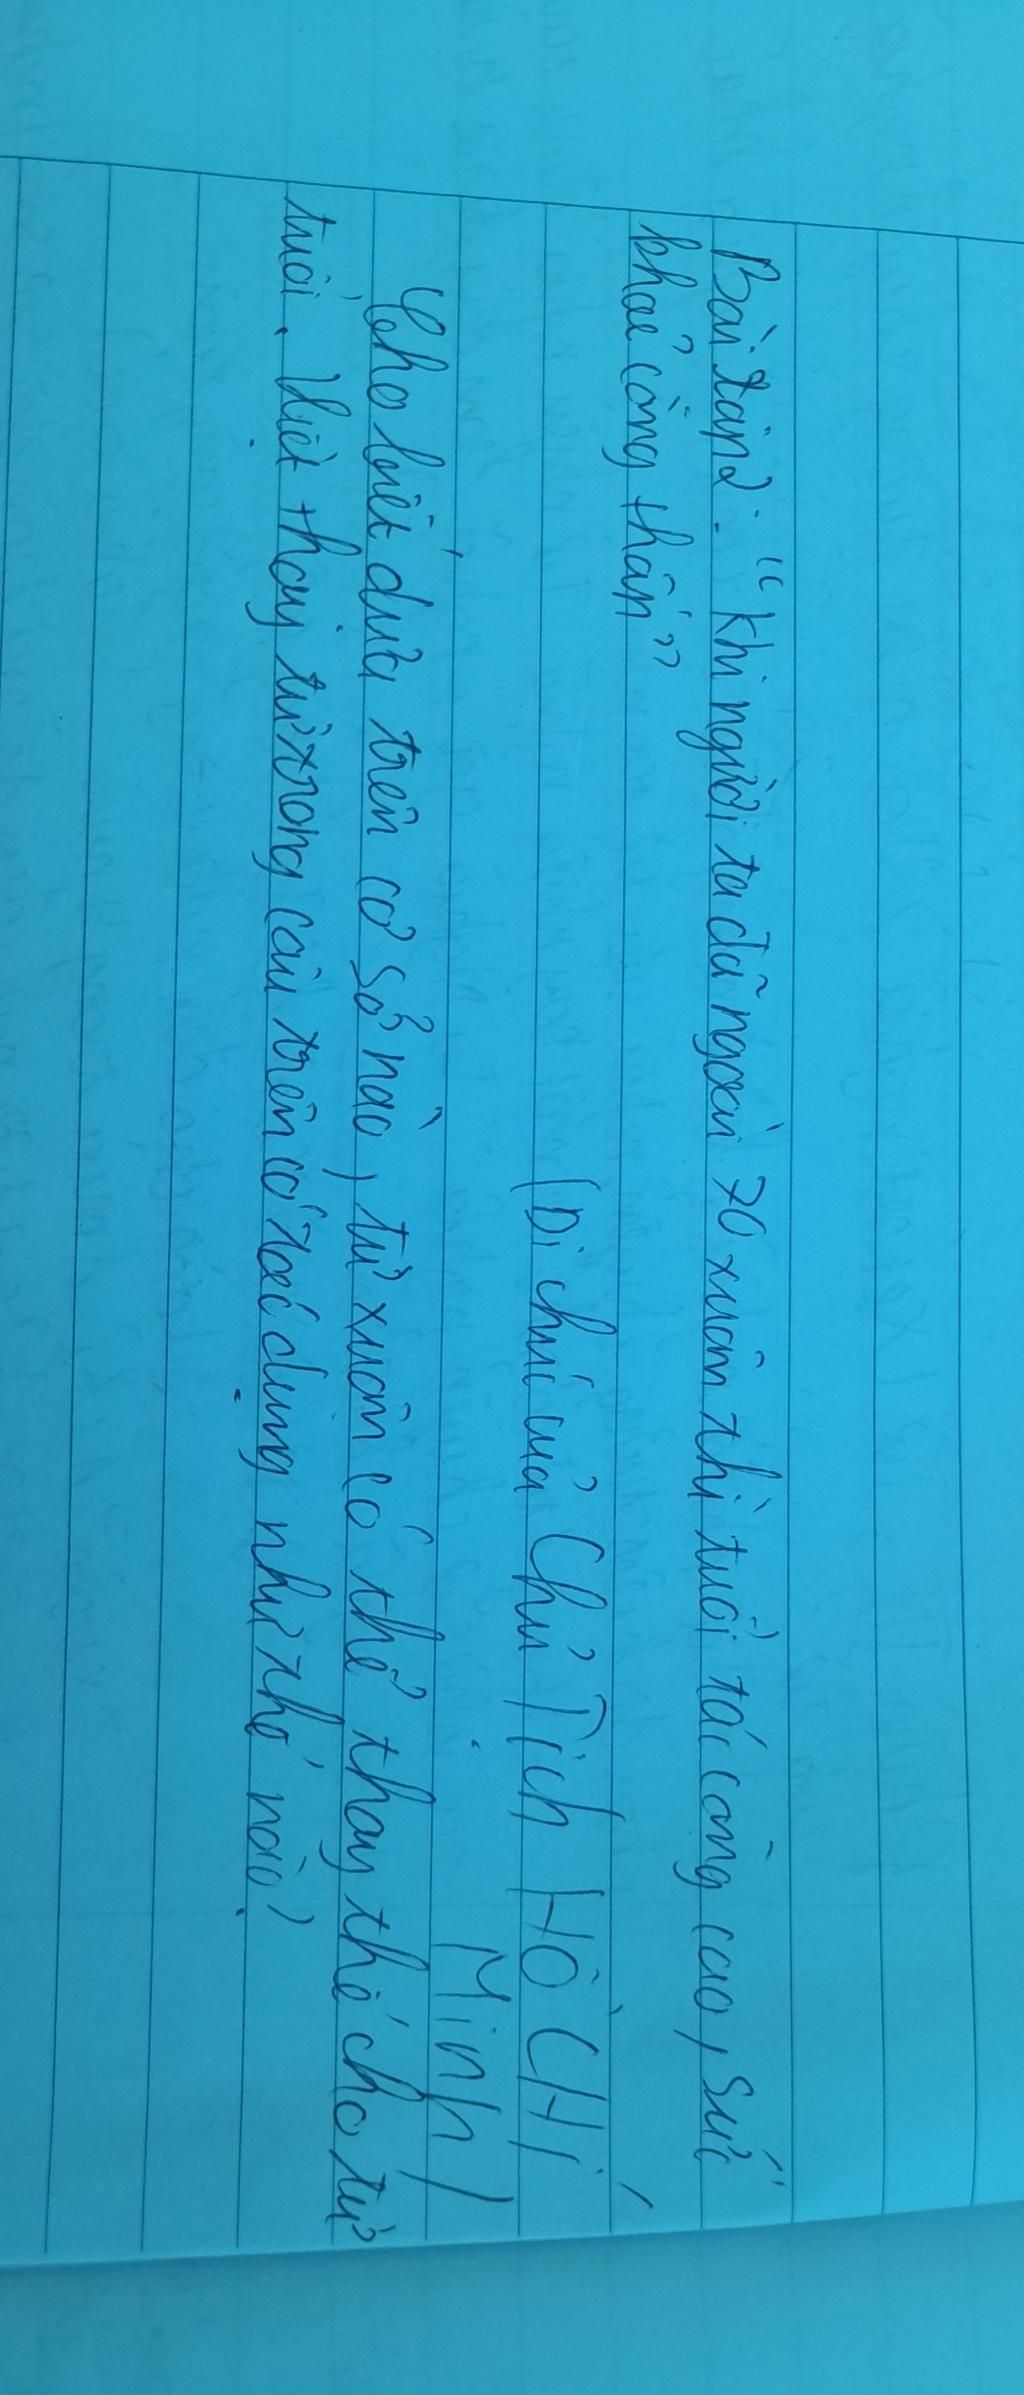 Bài tập 2: "Khi người ta đã ngoài 70 xuân thì tuổi tác càng cao, sức
khoẻ càng thấp"
(Di chúc của Chủ Tịch HỒ CHÍ
Minh)
Cho biết dựa trên cơ sở nào, từ xuân có thể thay thế cho từ
tuổi. Việc thay từ trong câu trên có tác dụng như thế nào?